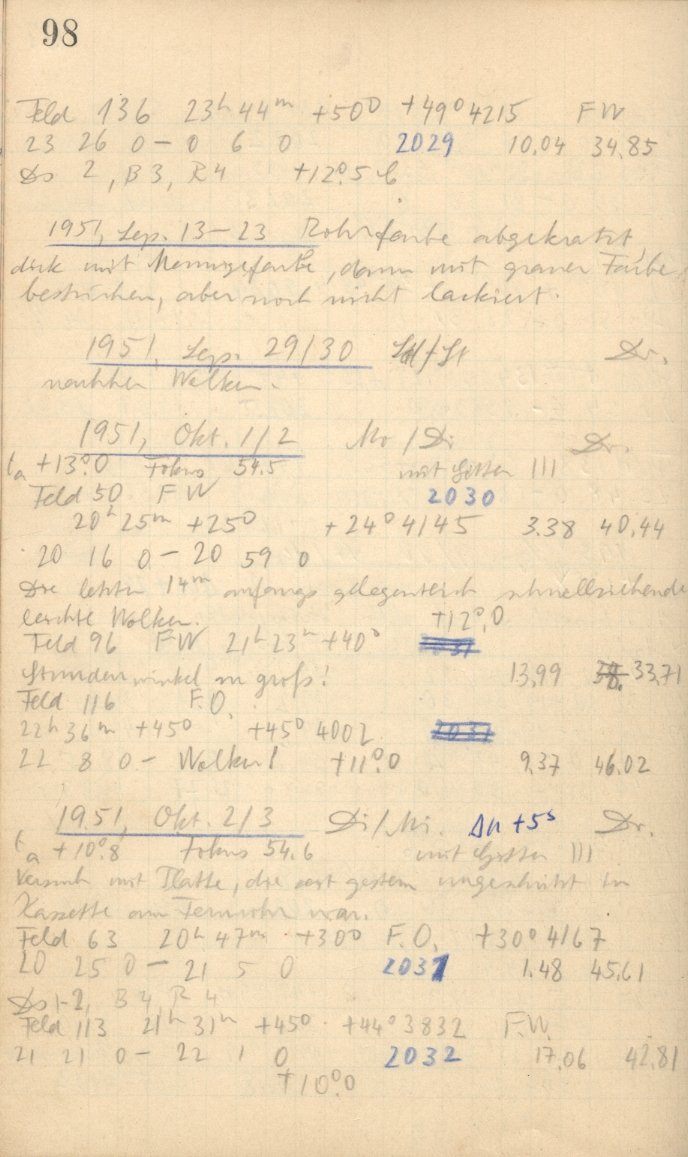 98
Feld 136 23h 44m +50° +49° 4215 FW
23 26 0 – 0 6 0 2029 10,04 34,85
Ds 2, B 3, R 4 +12°,5 C
1951, Sep. 13–23 Rohrfarbe abgekratzt,
dick mit Mennigefarbe, dann mit grauer Farbe
bestrichen, aber noch nicht lackiert.
1951, Sep. 29/30 /St Dr.
nachher Wolken.
1951, Okt. 1/2 Mo/Di Dr.
ta +13°,0 Fokus 54.5 mit Gitter III
Feld 50 FW 2030
20h 25m +25° +24° 4145 3.38 40,44
20 16 0 – 20 59 0
Die letzten 14m anfangs gelegentlich schnellziehende
leichte Wolken. +12°,0
Feld 96 FW 21h 23m +40° 2031
Stundenwinkel zu groß! 13,99 33,71
Feld 116 F.O.
22h 36m +45° +45° 4002 2031
22 8 0 – Wolken! +11°,0 9,37 46.02
1951, Okt. 2/3 Di/Mi. Δu +5s Dr.
ta +10°,8 Fokus 54.6 mit Gitter III
Versuch mit Platte, die seit gestern ungeschützt in
Kassette am Fernrohr war.
Feld 63 20h 47m +30° F.O. +30° 4167
20 25 0 – 21 5 0 2031 1.48 45,61
Ds 1-2, B 4, R 4
Feld 113 21h 31m +45° +44° 3832 F.W.
21 21 0 – 22 1 0 2032 17,06 42,81
+10°,0